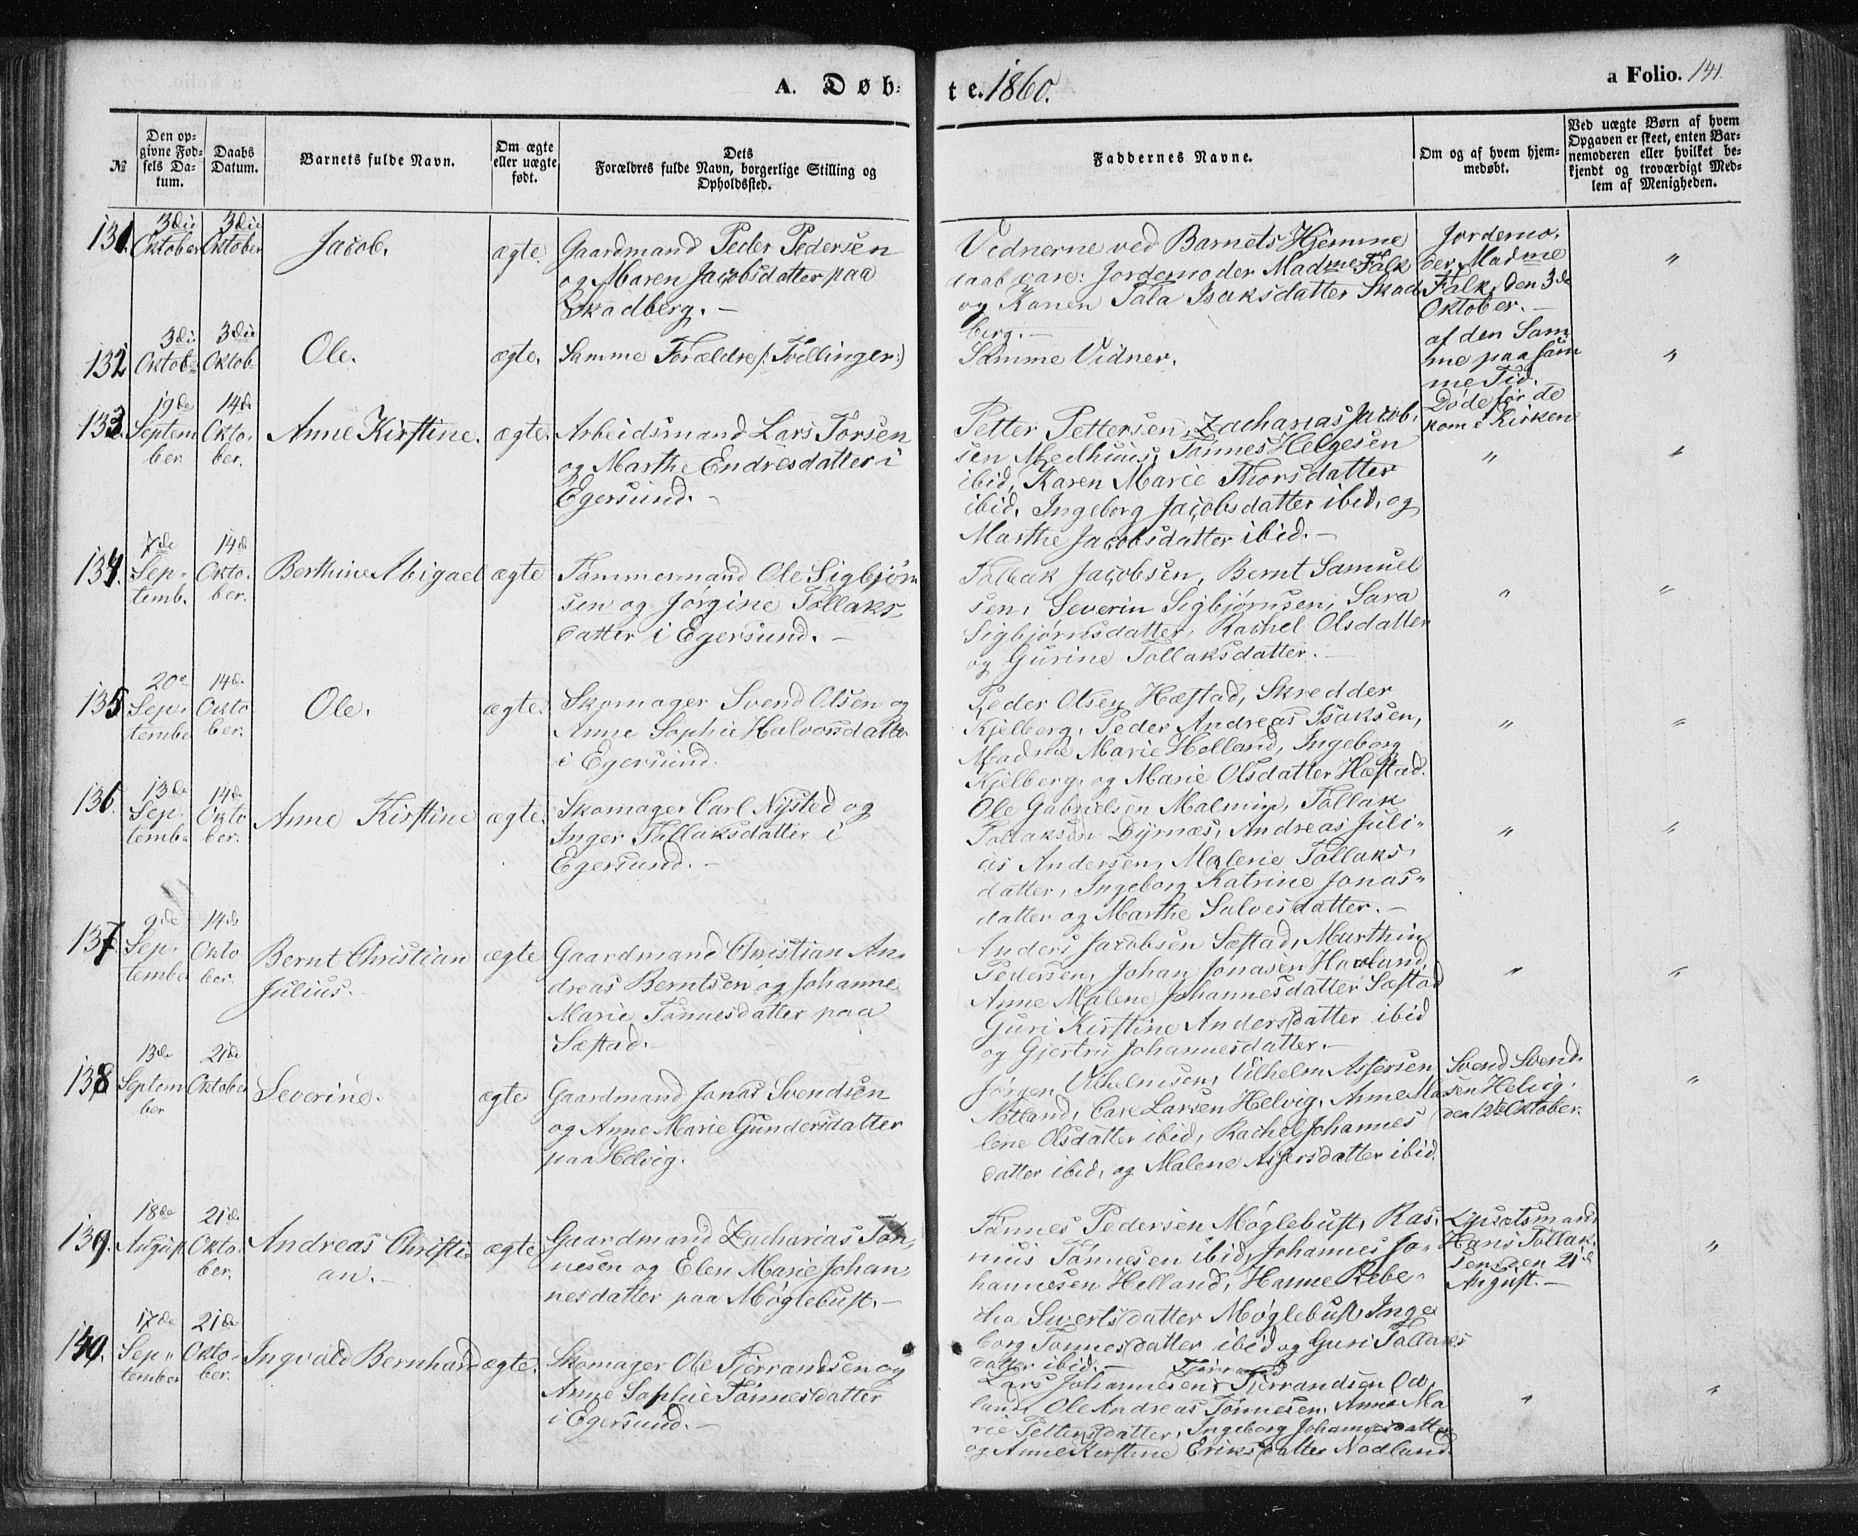 A. Døb-
te. 1860.
a Folio. 141.
№
Den op-
givne Fød-
sels Da-
tum.
Daabs
Datum.
Barnets fulde Navn.
Om ægte
eller uægte
født.
Dets
Forældres fulde Navn, borgerlige Stilling og
Opholdssted.
Faddernes Navne.
Om og af hvem hjem-
medøbt.
Ved uægte Børn af hvem
Opgaven er skeet, enten Bar-
nemoderen eller hvilket be-
kjendt og troværdigt Med-
lem af Menigheden.
131.
3die
Oktober
3die
Oktober
Jacob.
ægte.
Gaardmand Peder Pedersen
og Maren Jacobsdatter paa
Skadberg. -
Vidnerne ved Barnets Hjemme
daab vare: Jordemoder Madme Falk
og Konen Tala Isaksdatter Skad
berg. -
Jordemo,
der, Madme
Falk, den 3de
Oktober. -
"
132
3die
Oktob
3die
Oktob
Ole.
ægte.
Samme Forældre (: Tvillinger:)
Samme Vidner.
af den Sam
me paa sam
me Tid.
Døde før de
kom i Kirken
"
133.
19de
Septem
ber.
14de
Okto,
ber.
Anne Kirstine.
ægte.
Arbeidsmand Lars Torsen
og Marthe Endresdatter i
Egersund. -
Petter Pettersen, Zacharias Jacob,
sen Medhuus, Tønnes Helgesen
ibid, Karen Marie Thorsdatter
ibid, Ingeborg Jacobsdatter ibid, og
Marthe Jacobsdatter ibid. -
"
"
134.
7de
Sep-
temb.
14de
Okto.
ber.
Berthine Abigael
ægte
Tømmermand Ole Sigbjørn
sen og Jørgine Tollaks
datter i Egersund. -
Tollak Jacobsen, Bernt Samuel
sen, Severin Sigbjørnsen, Sara
Sigbjørnsdatter, Rachel Olsdatter
og Gurine Tollaksdatter. -
"
"
135
20de
Sep-
tembe
14de
Okto
ber.
Ole.
ægte.
Skomager Svend Olsen og
Anne Sophie Halvorsdatter
i Egersund.
Peder Olsen Hæstad, Skredder
Kjelberg, Peder Andreas Isaksen,
Madme Marie Holland, Ingeborg
Kjelberg, og Marie Olsdatter Hæstad.
"
"
136.
13de
Sep.
tembe
14de
Okto
ber.
Anne Kirstine
ægte.
Skomager Carl Nysted og
Inger Tollaksdatter i
Egersund. -
Ole Gabrielsen Malmin, Tollak
Tollaksen Dyrnæs, Andreas Juli-
us Andersen, Malene Tollaks,
datter, Ingeborg Katrine Jonas-
datter og Marthe Salvesdatter. -
"
"
137.
9de
Sep.
tembe
14de
Okto
ber.
Bernt Christian
Julius. -
ægte
Gaardmand Christian An-
dreas Berntsen og Johanne
Marie Tønnesdatter paa
Sæstad. -
Anders Jacobsen Sæstad, Marthin
Pedersen, Johan Jonasen Havland,
Anne Malene Johannesdatter Sæstad
Guri Kirstine Andersdatter ibid
og Gjertru Johannesdatter. -
"
"
138
13de
Septem
ber
21de
Oktober
Severine.
ægte
Gaardmand Jonas Svendsen
og Anne Marie Gundersdatter
paa Helvig.
Jørgen Vilhelmsen, Vilhelm Assersen
Nætland, Carl Larsen Helvig, Anne Ma
lene Olsdatter ibid, Rachel Johannes
datter ibid, og Malene Assersdatter ibid.
Svend Svend-
sen Helvig,
den 12te Oktober.
"
139.
18de
August
21de
Okto-
ber.
Andreas Christi-
an. -
ægte
Gaardmand Zacharias Tøn
nesen og Elen Marie Johan,
nesdatter paa Møglebust. -
Tønnes Pedersen Møglebust, Ras.
mus Tønnesen ibid, Johannes Jo-
hannesen Helland, Hanne Rebe-
kka Sivertsdatter Møglebust, Inge
borg Tønnesdatter ibid og Guri Tollaks
datter ibid. -
Opsætsmand
Hans Tollak.
sen den 21de
August. -
"
140.
17de
Sep-
tember
21de
Okto-
ber.
Ingvald Bernhard
ægte.
Skomager Ole Tjerrandsen og
Anne Sophie Tønnesdatter
i Egersund. -
Lars Johannesen, Tjerrandsen Od,
land, Ole Andreas Tønnesen, Anne Ma
rie Pettersdatter, Ingeborg Johannesdatter
og Anne Kirstine Eriksdatter Nodland.
"
"